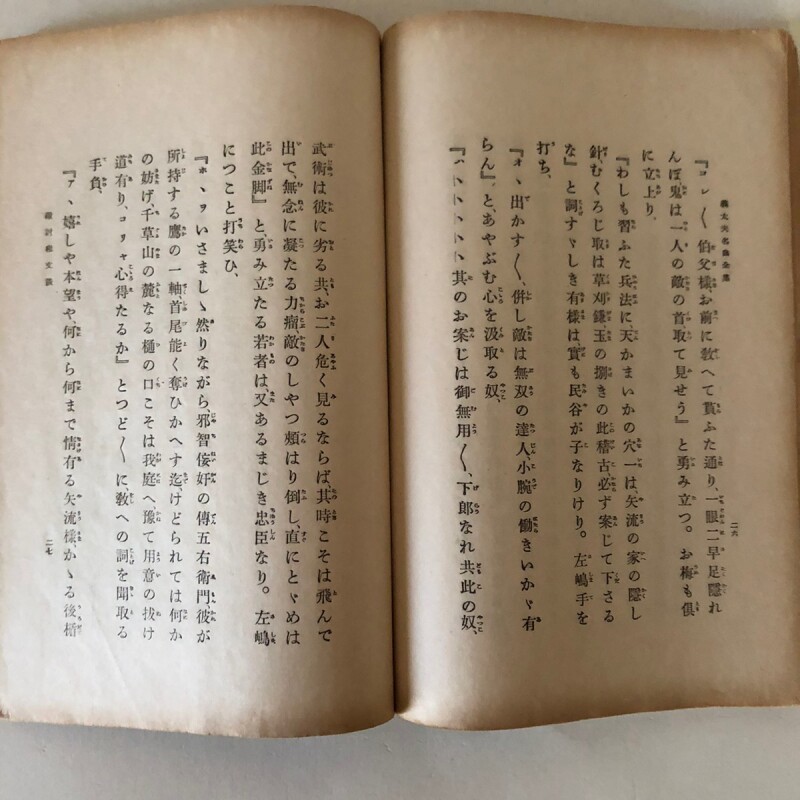 義太夫名曲全集
二六
『コレ〳〵伯父様お前に教へて貰ふた通り、一眼二早足隠れ
んぼ鬼は一人の敵の首取て見せう』と勇み立つ。お梅も倶
に立上り、
『わしも習ふた兵法に、天かまいかの穴一は、矢流の家の隠し
針むくろじ取は草刈鎌玉の捌きの此稽古、必ず案じて下さる
な』と詞すゝしき有様は、實も民谷が子なりけり。左嶋手を
打ち、
『オヽ出かす〳〵、併し敵は無双の達人、小腕の働きいかゞ有
らん』と、あやぶむ心を汲取る奴、
『ハトトトトト其のお案じは御無用〳〵、下郎なれ共此の奴、
武術は彼に劣る共、お二人危く見るならば、其時こそは飛んで
出で、無念に凝たる力瘤、敵のしやつ頰はり倒し、直にとゞめは
此金脚』と、勇み立たる若者は、又あるまじき忠臣なり。左嶋
につこと打笑ひ、
『ホヽヲいさましゝ然りながら邪智侫奸の傳五右衛門彼が
所持する鷹の一軸首尾能く奪ひかへす迄、けどられては何か
の妨げ、千草山の麓なる樋の口こそは我庭へ豫て用意の抜け
道有り、コリャ心得たるか』とつど〳〵に教への詞を聞取る
手負、
『アヽ嬉しや本望や、何から何まで情有る矢流様、かゝる後楯
二七